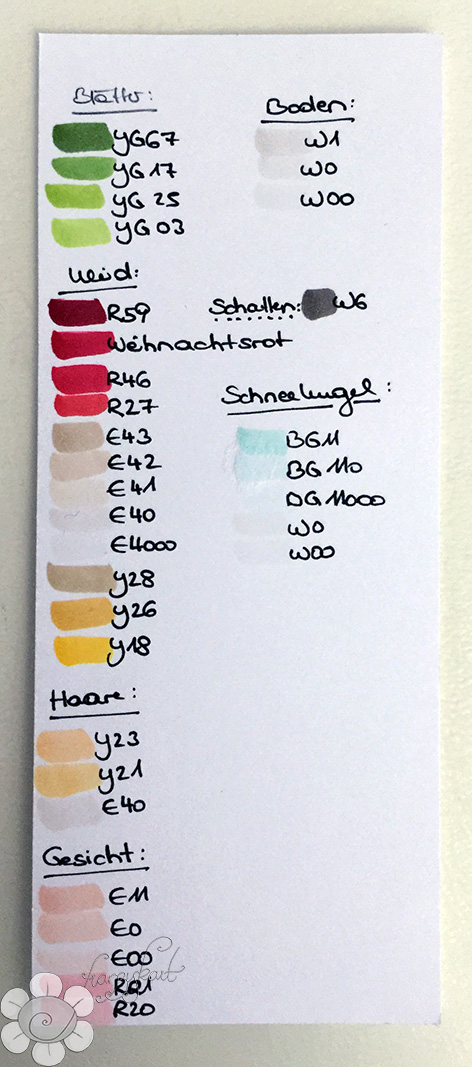 Blätter:
YG67
YG17
YG 25
YG 03
Kleid:
R59
Weihnachtsrot
R46
R27
E43
E42
E41
E40
E4000
Y28
Y26
Y18
Haare:
Y23
Y21
E40
Gesicht:
E11
E0
E00
R20
Boden:
W1
W0
W00
Schatten: W6
Schneekugel:
BG11
BG 110
W0
W00